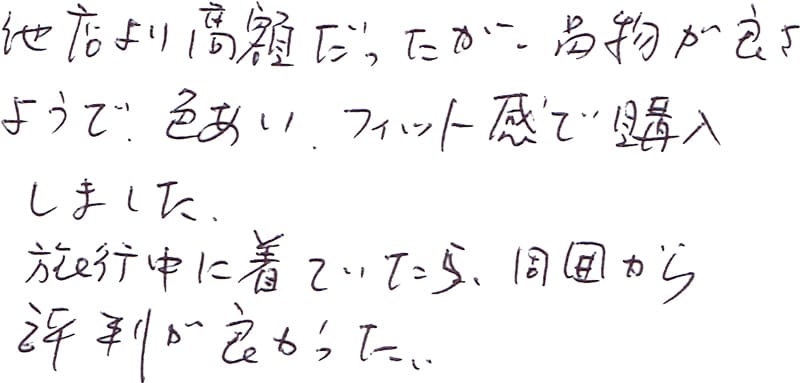 他店より高額だったが、品物が良さ
ようで、色あい、フィット感で購入
しました、
旅行中に着ていたら、周囲から
評判が良かった。